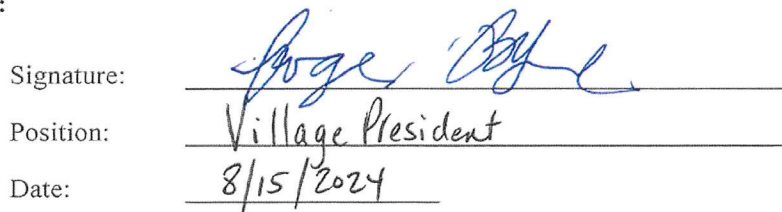 :
Signature: Roger Byrne
Position: Village President
Date: 8/15/2024